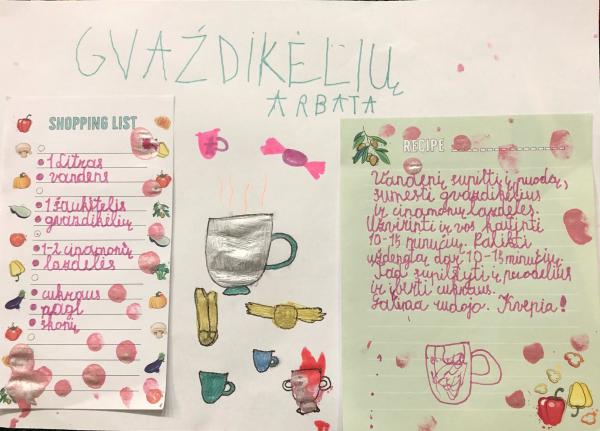 GVAŽDIKĖLIŲ
ARBATA
SHOPPING LIST
1 Litras
vandens
1 šaukštelis
gvazdikėlių
1-2 cinamonų
lazdelės
cukraus
pagl
skonį
RECIPE
Vandenį supilti į puodą,
sumesti gvazdikėlius
ir cinamonų lazdeles.
Užvirinti ir vos kaitinti
10-15 minučių. Palikti
uždengtą dar 10-15 minučių.
Tad supilstyti į puodelius
ir įberti cukraus.
Galima rudojo. Kvepia!